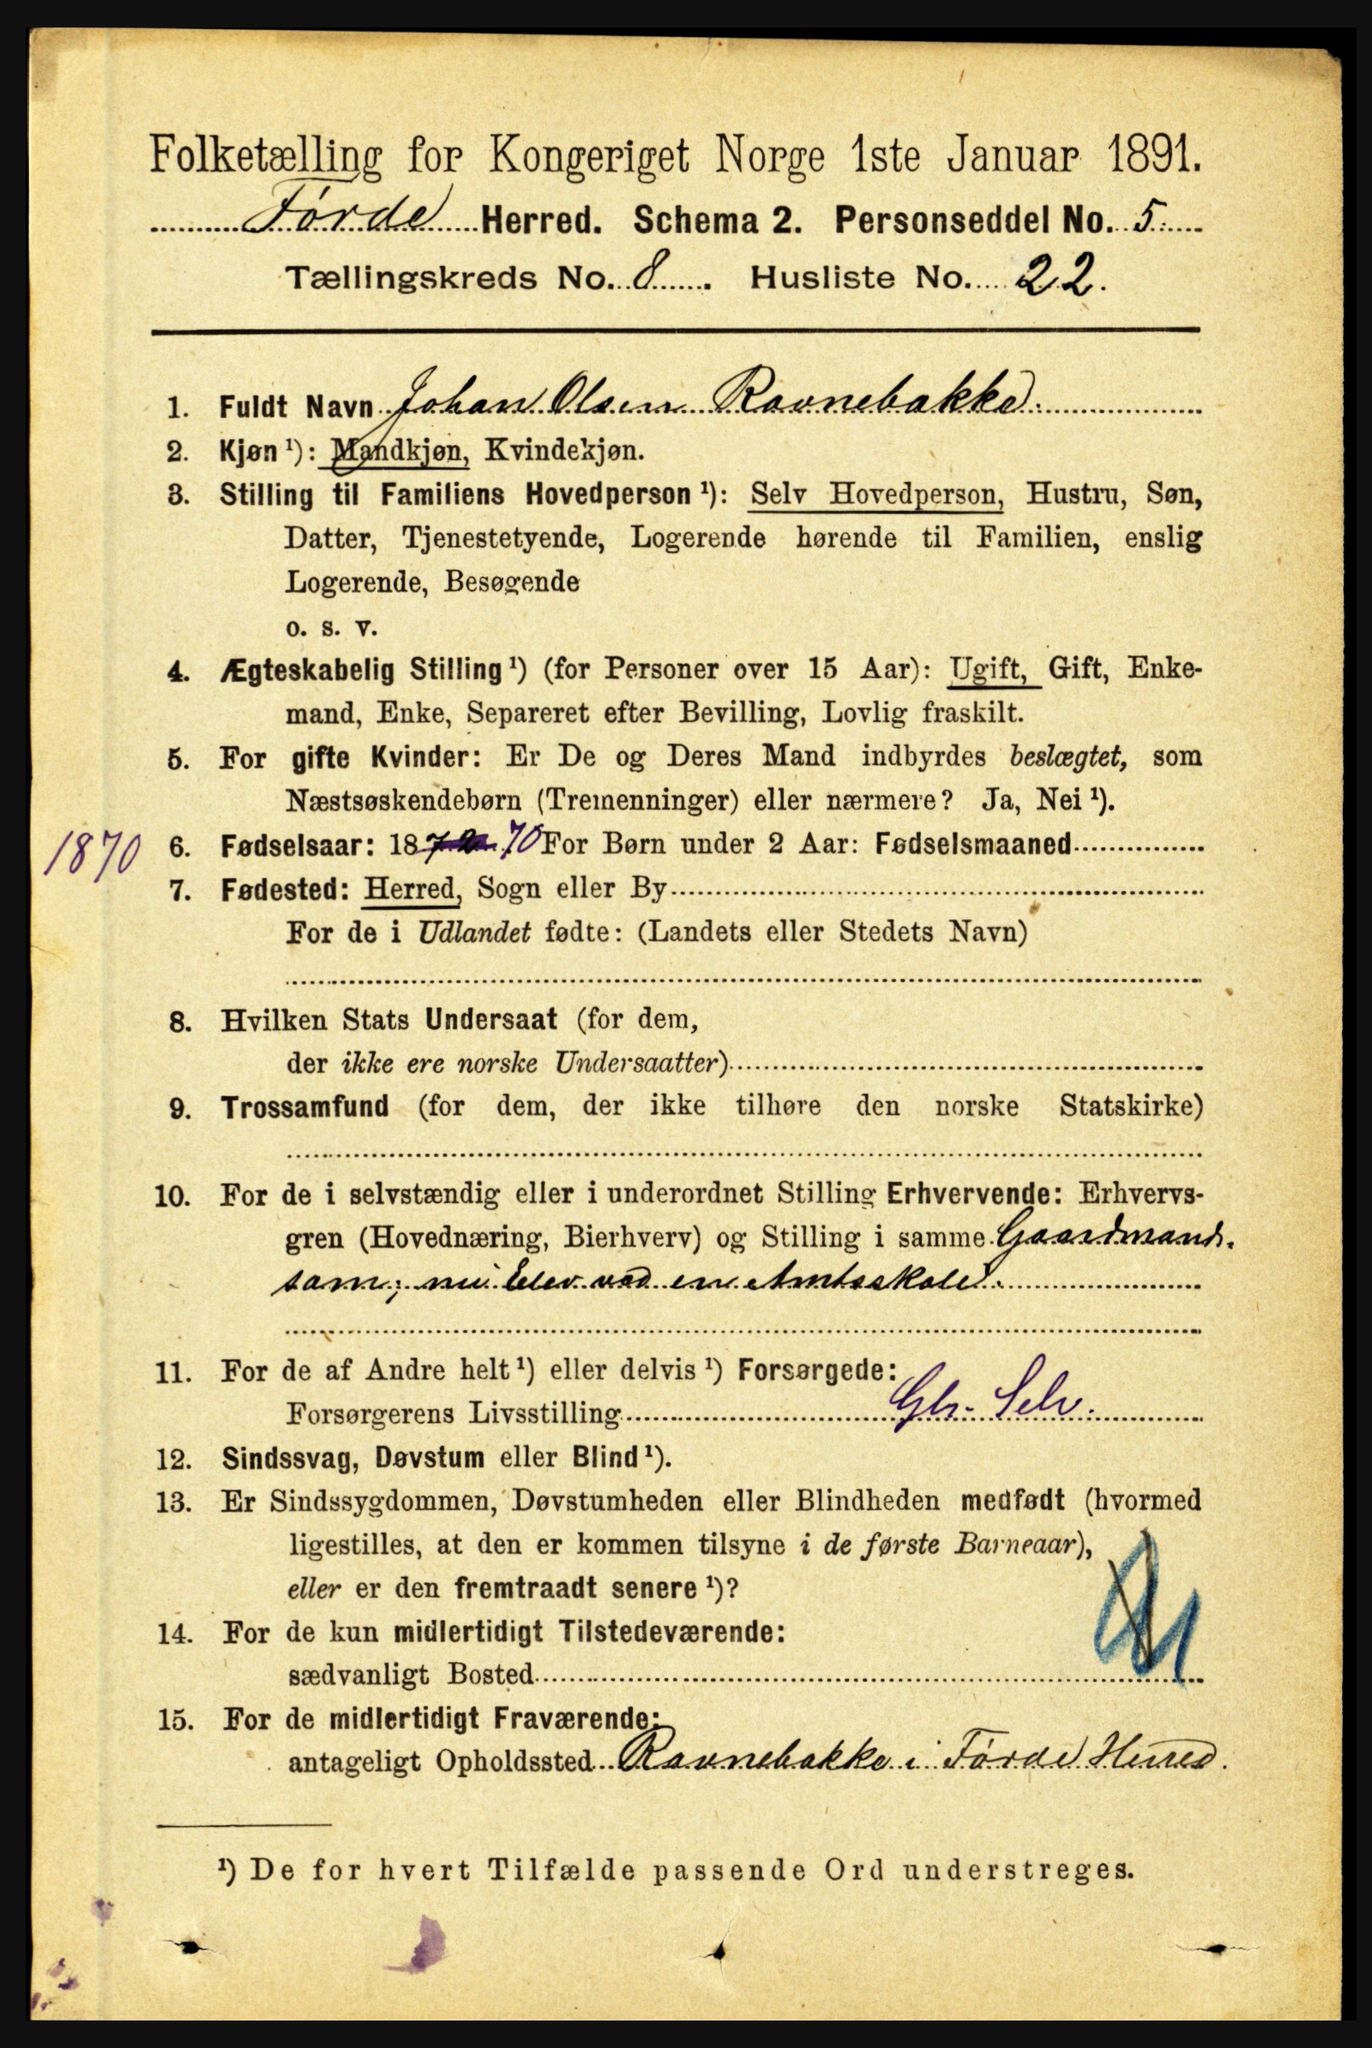 Folketælling for Kongeriget Norge 1ste Januar 1891.
Førde Herred. Schema 2. Personseddel No. 5.
Tællingskreds No. 8. Husliste No. 22.
1. Fuldt Navn Johan Olsen Ravnebakke.
2. Kjøn ¹): Mandkjøn, Kvindekjøn.
3. Stilling til Familiens Hovedperson ¹): Selv Hovedperson, Hustru, Søn,
Datter, Tjenestetyende, Logerende hørende til Familien, enslig
Logerende, Besøgende
o. s. v.
4. Ægteskabelig Stilling ¹) (for Personer over 15 Aar): Ugift, Gift, Enke-
mand, Enke, Separeret efter Bevilling, Lovlig fraskilt.
5. For gifte Kvinder: Er De og Deres Mand indbyrdes beslægtet, som
Næstsøskendebørn (Tremenninger) eller nærmere? Ja, Nei ¹).
1870 6. Fødselsaar: 18 70 For Børn under 2 Aar: Fødselsmaaned
7. Fødested: Herred, Sogn eller By
For de i Udlandet fødte: (Landets eller Stedets Navn)
8. Hvilken Stats Undersaat (for dem,
der ikke ere norske Undersaatter)
9. Trossamfund (for dem, der ikke tilhøre den norske Statskirke)
10. For de i selvstændig eller i underordnet Stilling Erhvervende: Erhvervs-
gren (Hovednæring, Bierhverv) og Stilling i samme Gaardmands.
søn; nu Elev ved en Amtsskole.
11. For de af Andre helt ¹) eller delvis ¹) Forsørgede:
Forsørgerens Livsstilling Gbr. Selv.
12. Sindssvag, Døvstum eller Blind ¹).
13. Er Sindssygdommen, Døvstumheden eller Blindheden medfødt (hvormed
ligestilles, at den er kommen tilsyne i de første Barneaar),
eller er den fremtraadt senere ¹)?
14. For de kun midlertidigt Tilstedeværende:
sædvanligt Bosted
15. For de midlertidigt Fraværende:
antageligt Opholdssted Ravnebakke i Førde Herred.
¹) De for hvert Tilfælde passende Ord understreges.